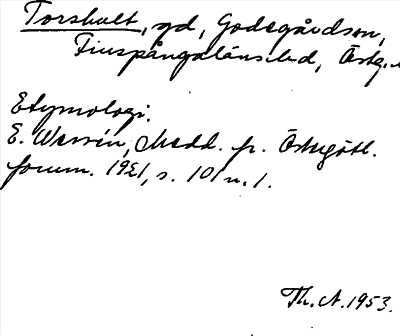 Torshult, gd, Godegårdson,
Finspångalänsbd, Östg.
Etymologi.
E. Wessén, Medd. fr. Östergötl.
fornm. 1921, s. 101 n. 1.
Th. A. 1953.